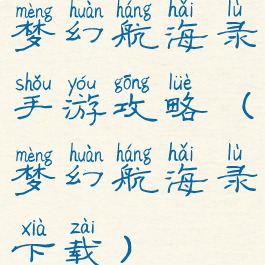 mèng huàn háng hǎi lù
梦幻航海录
shǒu yóu gōng lüè
手游攻略（
mèng huàn háng hǎi lù
梦幻航海录
xià zài
下载）